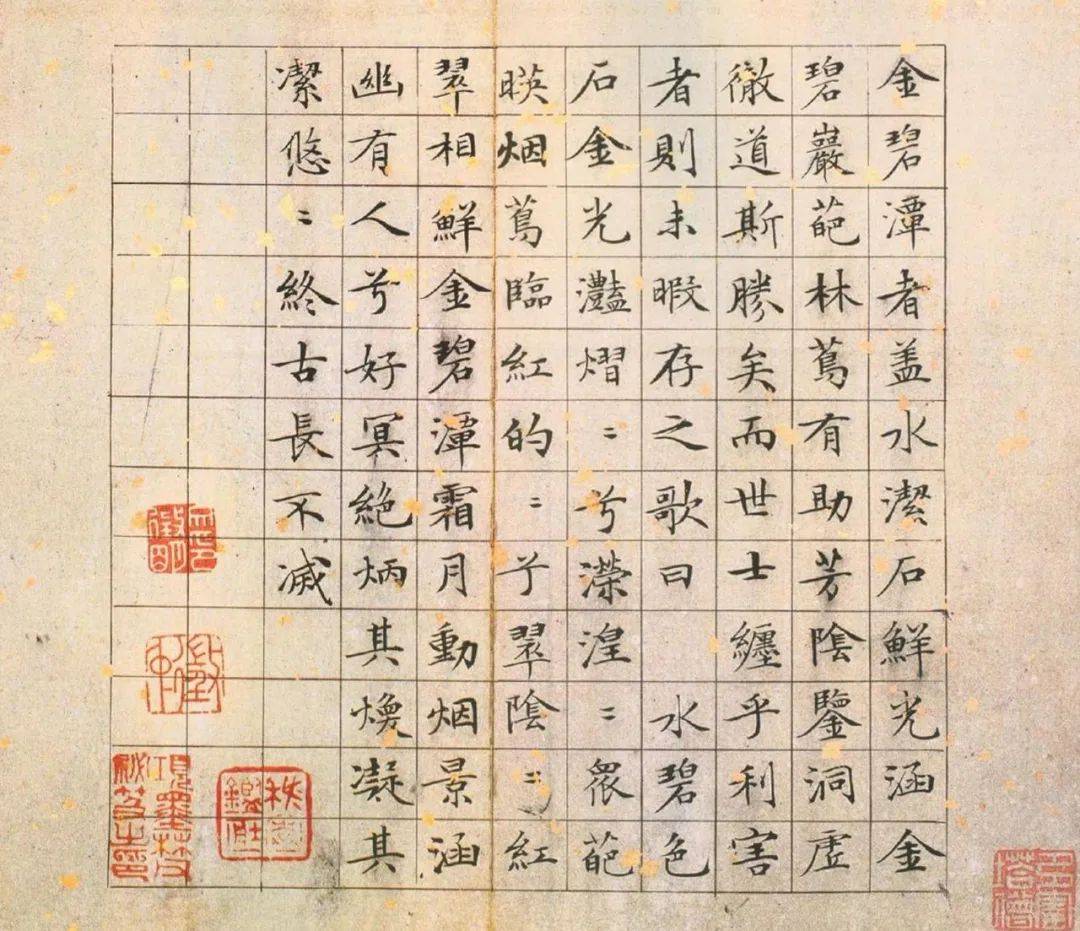 金碧潭者盖水潔石鮮光涵金
碧巖葩林蔦有助芳陰鑒洞虛
徹道斯勝矣而世士纏乎利害
者則未暇存之歌曰 水碧色
石金光灩熠〻兮濴湟〻葩
暎烟蔦臨紅的〻兮翠陰〻紅
翠相鮮金碧潭霜月動烟景涵
幽有人兮好冥絶炳其煥凝其
潔悠〻終古長不滅